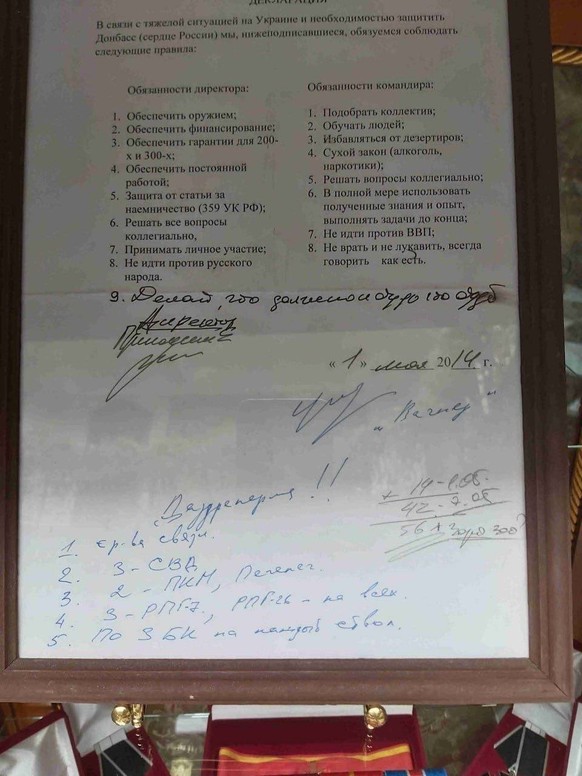 ДЕКЛАРАЦИЯ
В связи с тяжелой ситуацией на Украине и необходимостью защитить
Донбасс (сердце России) мы, нижеподписавшиеся, обязуемся соблюдать
следующие правила:
Обязанности директора:
1. Обеспечить оружием;
2. Обеспечить финансирование;
3. Обеспечить гарантии для 200-
х и 300-х;
4. Обеспечить постоянной
работой;
5. Защита от статьи за
наемничество (359 УК РФ);
6. Решать все вопросы
коллегиально,
7. Принимать личное участие;
8. Не идти против русского
народа.
Обязанности командира:
1. Подобрать коллектив;
2. Обучать людей;
3. Избавляться от дезертиров;
4. Сухой закон (алкоголь,
наркотики);
5. Решать вопросы коллегиально;
6. В полной мере использовать
полученные знания и опыт,
выполнять задачи до конца;
7. Не идти против ВВП;
8. Не врать и не лукавить, всегда
говорить как есть.
9. Делай, что должно и будь что будет
Директор
Пригожин Е
« 1 » мая 2014 г.
"Вагнер"
!!
1. ср-ва связи.
2. 3-СВД
3. 2-ПКМ, Печенег.
4. 3-РПГ-7, РПГ-26 - на всех.
5. По 3 БК на каждый ствол.
+ 14-1.05.
42-7.05
56